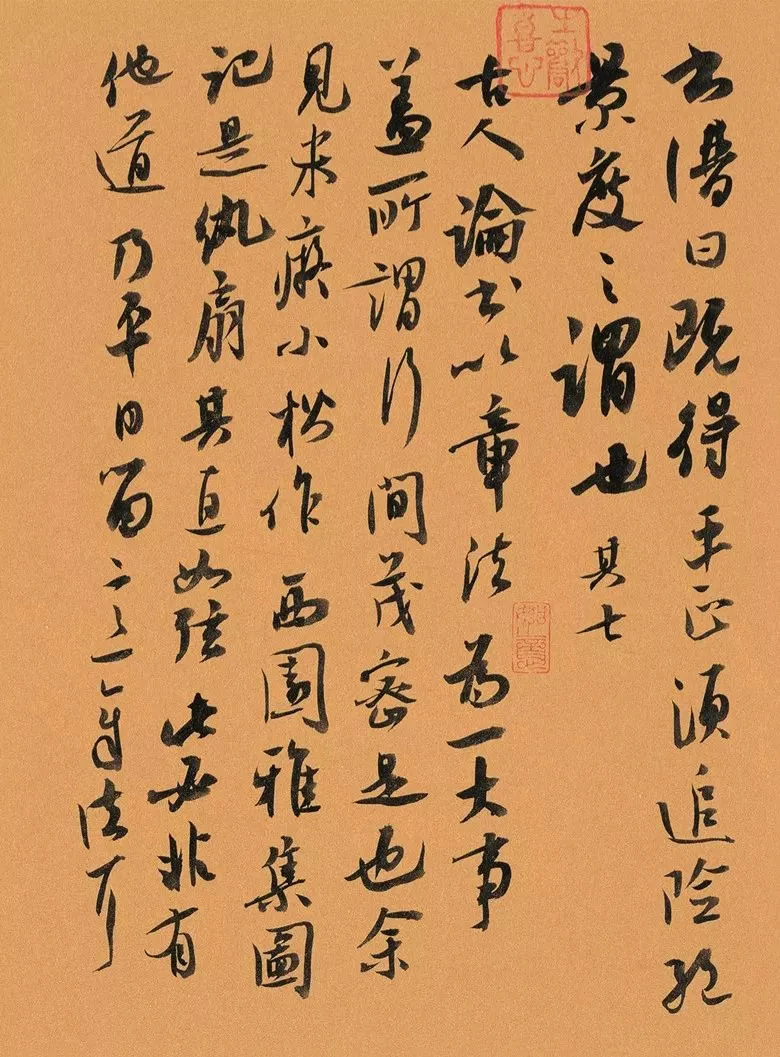 書譜曰既得平正須追險絕
景度之謂也 其七
古人論書以章法為一大事
蓋所謂行間茂密是也余
見米癡小楷作西園雅集圖
記是紈扇其直如弦此必非有
他道乃平日留意章法耳